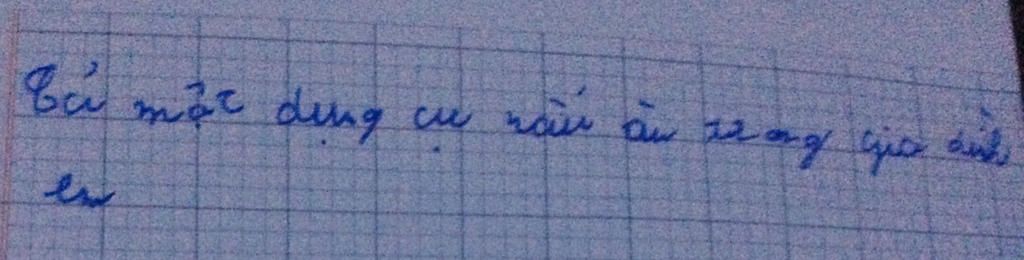 Tả một dụng cụ nấu ăn trong gia đình
em